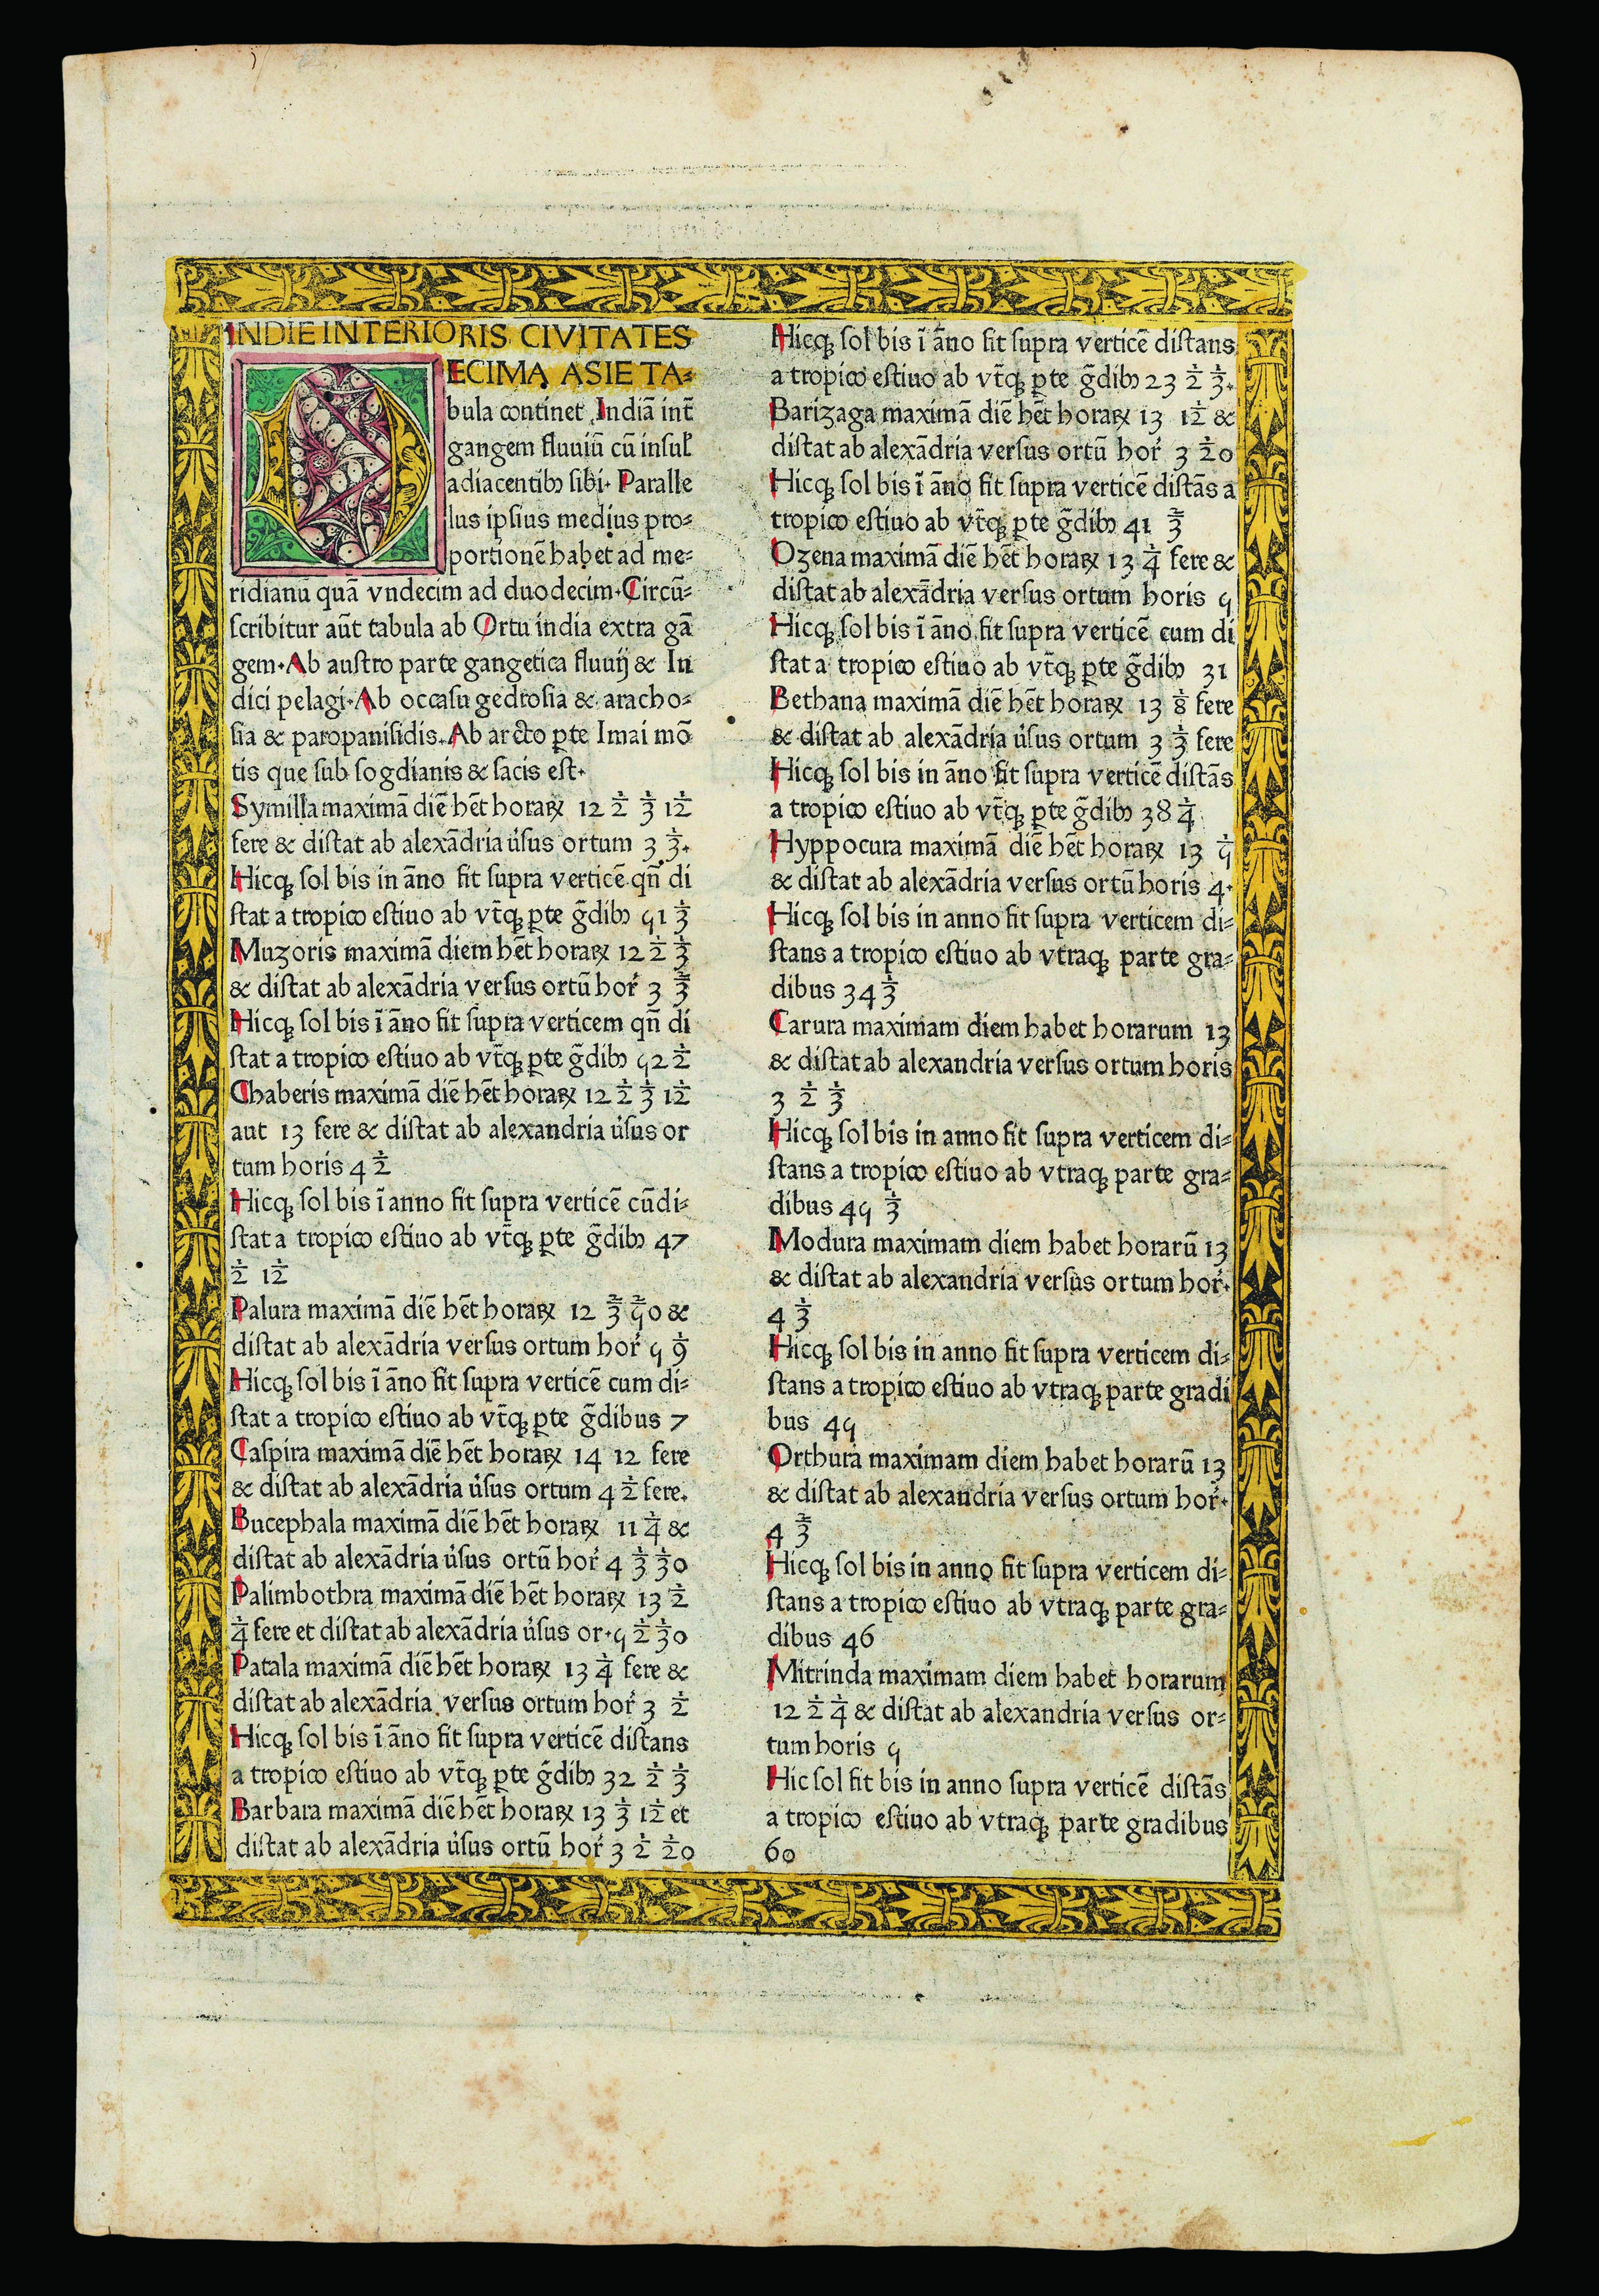 INDIE INTERIORIS CIVITATES
DECIMA ASIE TA⸗
bula continet Indiā int̄
gangem fluuiū cū insul̄
adiacentibꝫ sibi. Paralle
lus ipsius medius pro⸗
portionē habet ad me⸗
ridianū quā vndecim ad duodecim. Circū⸗
scribitur aūt tabula ab Ortu india extra gā
gem. Ab austro parte gangetica fluuij & In
dici pelagi. Ab occasu gedrosia & aracho⸗
sia & paropanisidis. Ab arcto ꝑte Imai mō
tis que sub sogdianis & sacis est.
Symilla maximā diē hēt horaꝝ 12 ½ ⅓ 1½
fere & distat ab alexādria ủsus ortum 3 ⅓.
Hicqꝫ sol bis in āno fit supra verticē qn̄ di
stat a tropico estiuo ab vt̄qꝫ ꝑte ḡdibꝫ 51 ⅓
Muzoris maximā diem hēt horaꝝ 12 ½ ⅓
& distat ab alexādria versus ortū hoŕ 3 ⅔
Hicqꝫ sol bis ī āno fit supra verticem qn̄ di
stat a tropico estiuo ab vt̄qꝫ ꝑte ḡdibꝫ 52 ½
Chaberis maximā diē hēt horaꝝ 12 ½ ⅓ 1½
aut 13 fere & distat ab alexandria ủsus or
tum horis 4 ½
Hicqꝫ sol bis ī anno fit supra verticē cū di⸗
stat a tropico estiuo ab vt̄qꝫ ꝑte ḡdibꝫ 47
½ 1½
Palura maximā diē hēt horaꝝ 12 ⅔ ⅖0 &
distat ab alexādria versus ortum hoŕ 5 ⅑
Hicqꝫ sol bis ī āno fit supra verticē cum di⸗
stat a tropico estiuo ab vt̄qꝫ ꝑte ḡdibus 7
Caspira maximā diē hēt horaꝝ 14 12 fere
& distat ab alexādria ủsus ortum 4 ½ fere.
Bucephala maximā diē hēt horaꝝ 11 ¼ &
distat ab alexādria ủsus ortū hoŕ 4 ⅓ ⅓0
Palimbothra maximā diē hēt horaꝝ 13 ½
¼ fere et distat ab alexādria ủsus or. 5 ½ ⅓0
Patala maximā diē hēt horaꝝ 13 ¼ fere &
distat ab alexādria versus ortum hoŕ 3 ½
Hicqꝫ sol bis ī āno fit supra verticē distans
a tropico estiuo ab vt̄qꝫ ꝑte ḡdibꝫ 32 ½ ⅓
Barbara maximā diē hēt horaꝝ 13 ⅓ 1½ et
distat ab alexādria ủsus ortū hoŕ 3 ½ ½0
Hicqꝫ sol bis ī āno fit supra verticē distans
a tropico estiuo ab vt̄qꝫ ꝑte ḡdibꝫ 23 ½ ⅓.
Barizaga maximā diē hēt horaꝝ 13 1½ &
distat ab alexādria versus ortū hoŕ 3 ½0
Hicqꝫ sol bis ī āno fit supra verticē distās a
tropico estiuo ab vt̄qꝫ ꝑte ḡdibꝫ 41 ⅔
Ozena maximā diē hēt horaꝝ 13 ¼ fere &
distat ab alexādria versus ortum horis 5
Hicqꝫ sol bis ī āno fit supra verticē cum di
stat a tropico estiuo ab vt̄qꝫ ꝑte ḡdibꝫ 31
Bethana maximā diē hēt horaꝝ 13 ⅛ fere
& distat ab alexādria ủsus ortum 3 ⅓ fere
Hicqꝫ sol bis in āno fit supra verticē distās
a tropico estiuo ab vt̄qꝫ ꝑte ḡdibꝫ 38 ¼
Hyppocura maximā diē hēt horaꝝ 13 ⅕
& distat ab alexādria versus ortū horis 4.
Hicqꝫ sol bis in anno fit supra verticem di⸗
stans a tropico estiuo ab vtraqꝫ parte gra⸗
dibus 34 ⅓
Carura maximam diem habet horarum 13
& distat ab alexandria versus ortum horis
3 ½ ⅓
Hicqꝫ sol bis in anno fit supra verticem di⸗
stans a tropico estiuo ab vtraqꝫ parte gra⸗
dibus 45 ⅓
Modura maximam diem habet horarū 13
& distat ab alexandria versus ortum hoŕ.
4 ⅓
Hicqꝫ sol bis in anno fit supra verticem di⸗
stans a tropico estiuo ab vtraqꝫ parte gradi
bus 45
Orthura maximam diem habet horarū 13
& distat ab alexandria versus ortum hoŕ.
4 ⅔
Hicqꝫ sol bis in anno fit supra verticem di⸗
stans a tropico estiuo ab vtraqꝫ parte gra⸗
dibus 46
Mitrinda maximam diem habet horarum
12 ½ ¼ & distat ab alexandria versus or⸗
tum horis 5
Hic sol fit bis in anno supra verticē distās
a tropico estiuo ab vtraqꝫ parte gradibus
60